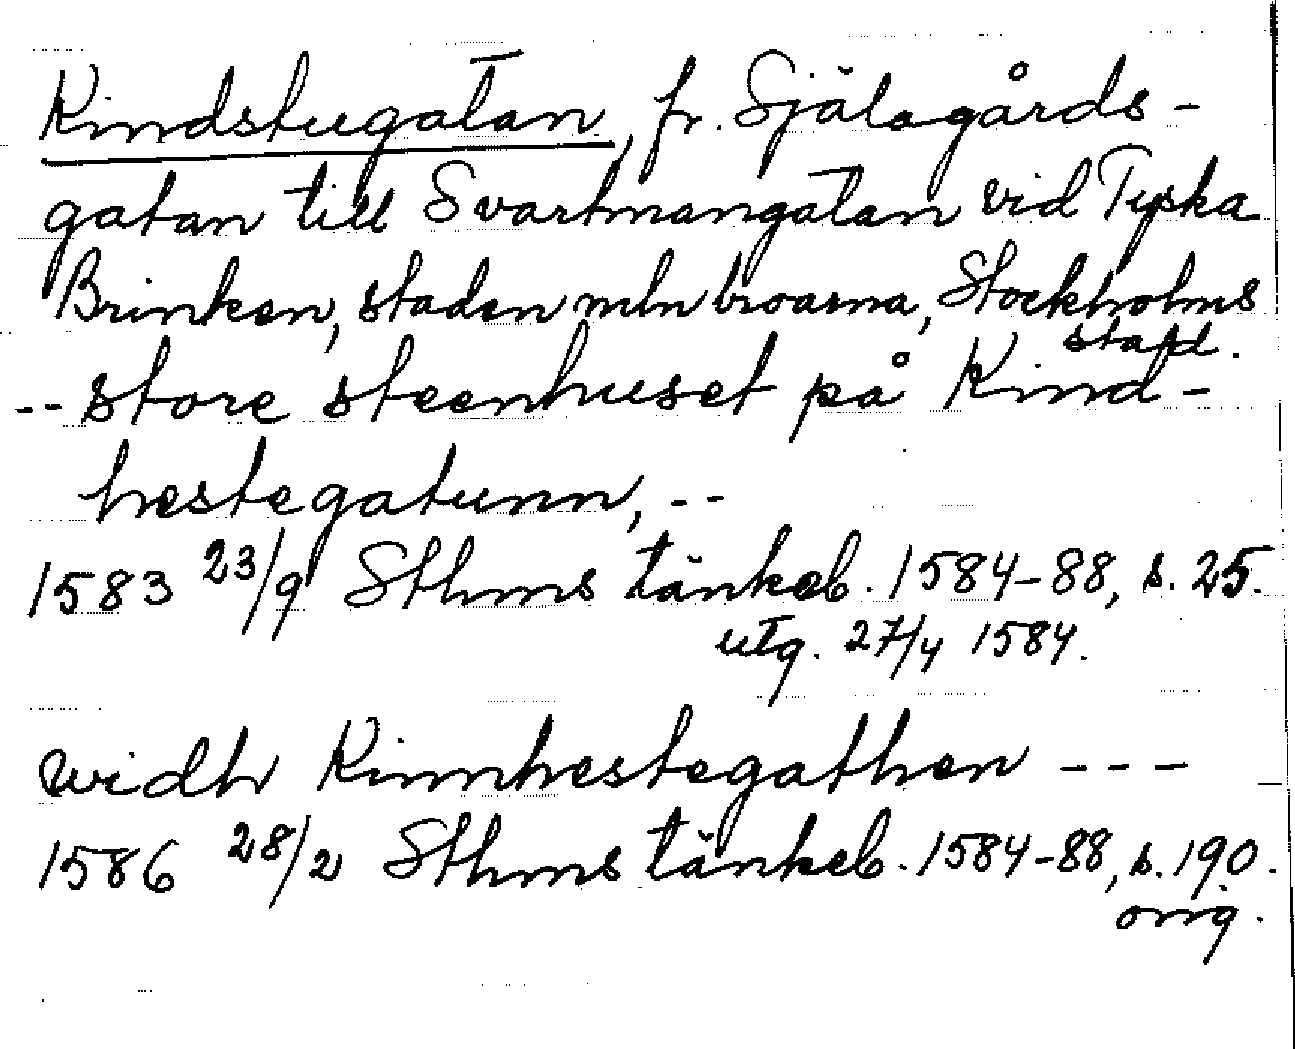 Kindstugatan, fr. Själagårds-
gatan till Svartmangatan vid Tyska
Brinken, staden mln broarna, Stockholms
stad.
-- store steenhuset på Kind-
hestegatunn, --
1583 23/9 Sthms tänkeb. 1584-88, s. 25.
utg. 27/4 1584.
widh Kinnhestegathen ---
1586 28/2 Sthms tänkeb. 1584-88, s. 190.
orig.